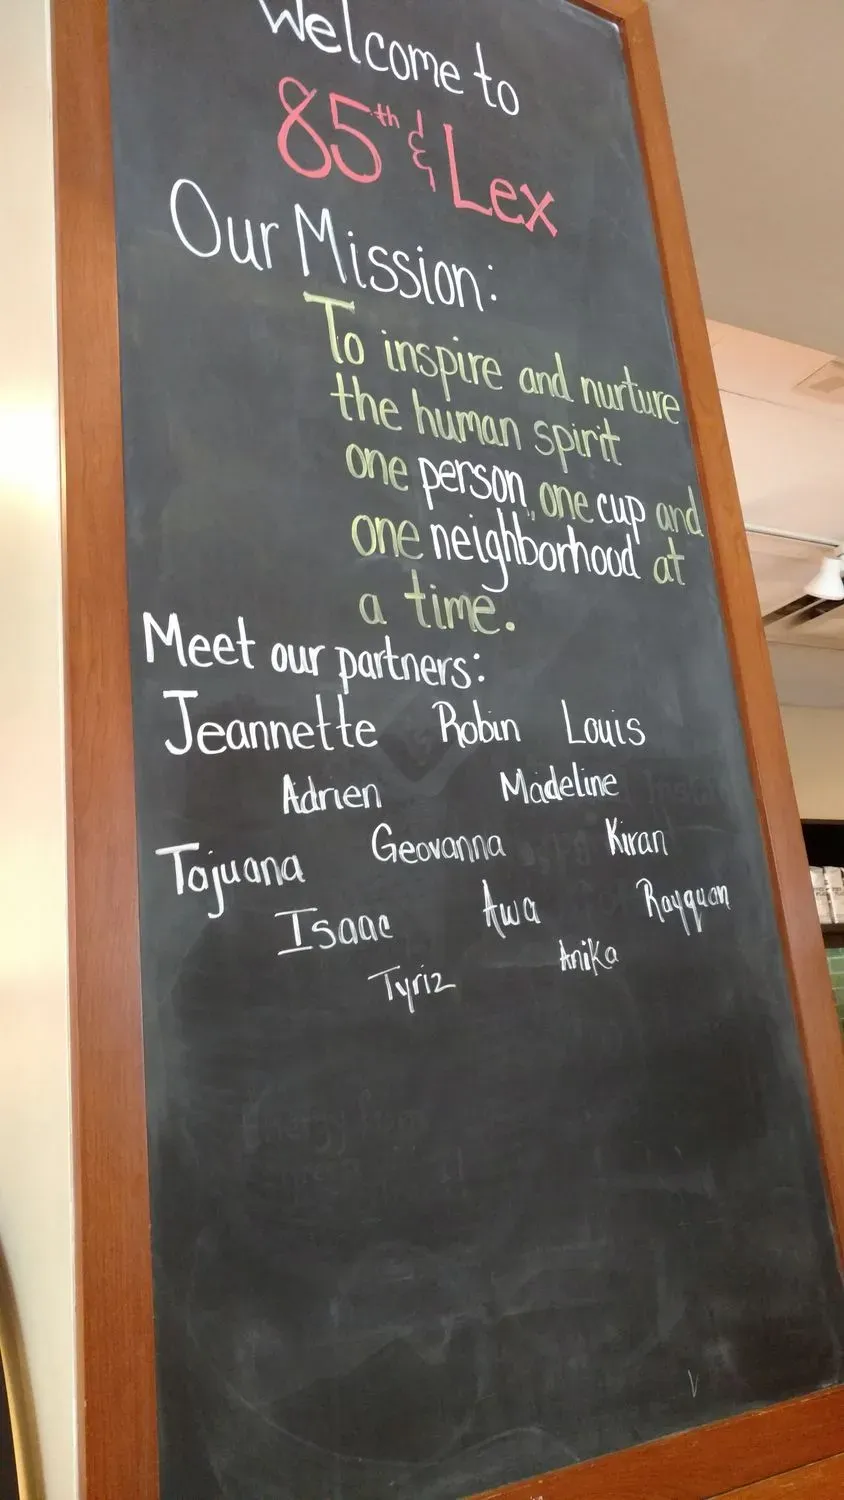 Welcome to
85th & Lex
Our Mission:
To inspire and nurture
the human spirit
one person, one cup and
one neighborhood at
a time.
Meet our partners:
Jeannette Robin Louis
Adrien Madeline
Tajuana Geovanna Kiran
Isaac Awa Rayquan
Tyriz Anika